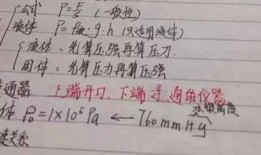 公式 P=F/S (一般性)
液体 P=ρ液·g·h (只适用液体)
液体：先算压强再算压力
固体：先算压力再算压强
通器 上端开口、下端 连通仪器
P₀=1×10⁵Pa ← 760mmHg